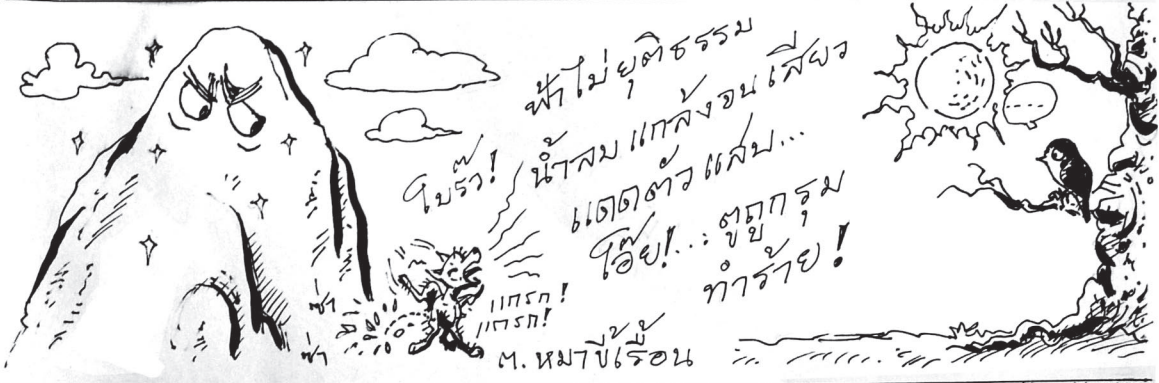 ฟ้าไม่ยุติธรรม
น้ำลม แกล้งจนเสียว
แดดตัวแสบ...
โอ๊ย!... ตูถูกรุม
ทำร้าย!
โบร๋ว!
แกรก!
แกรก!
ซ่า
ซ่า
ต. หมาขี้เรื้อน